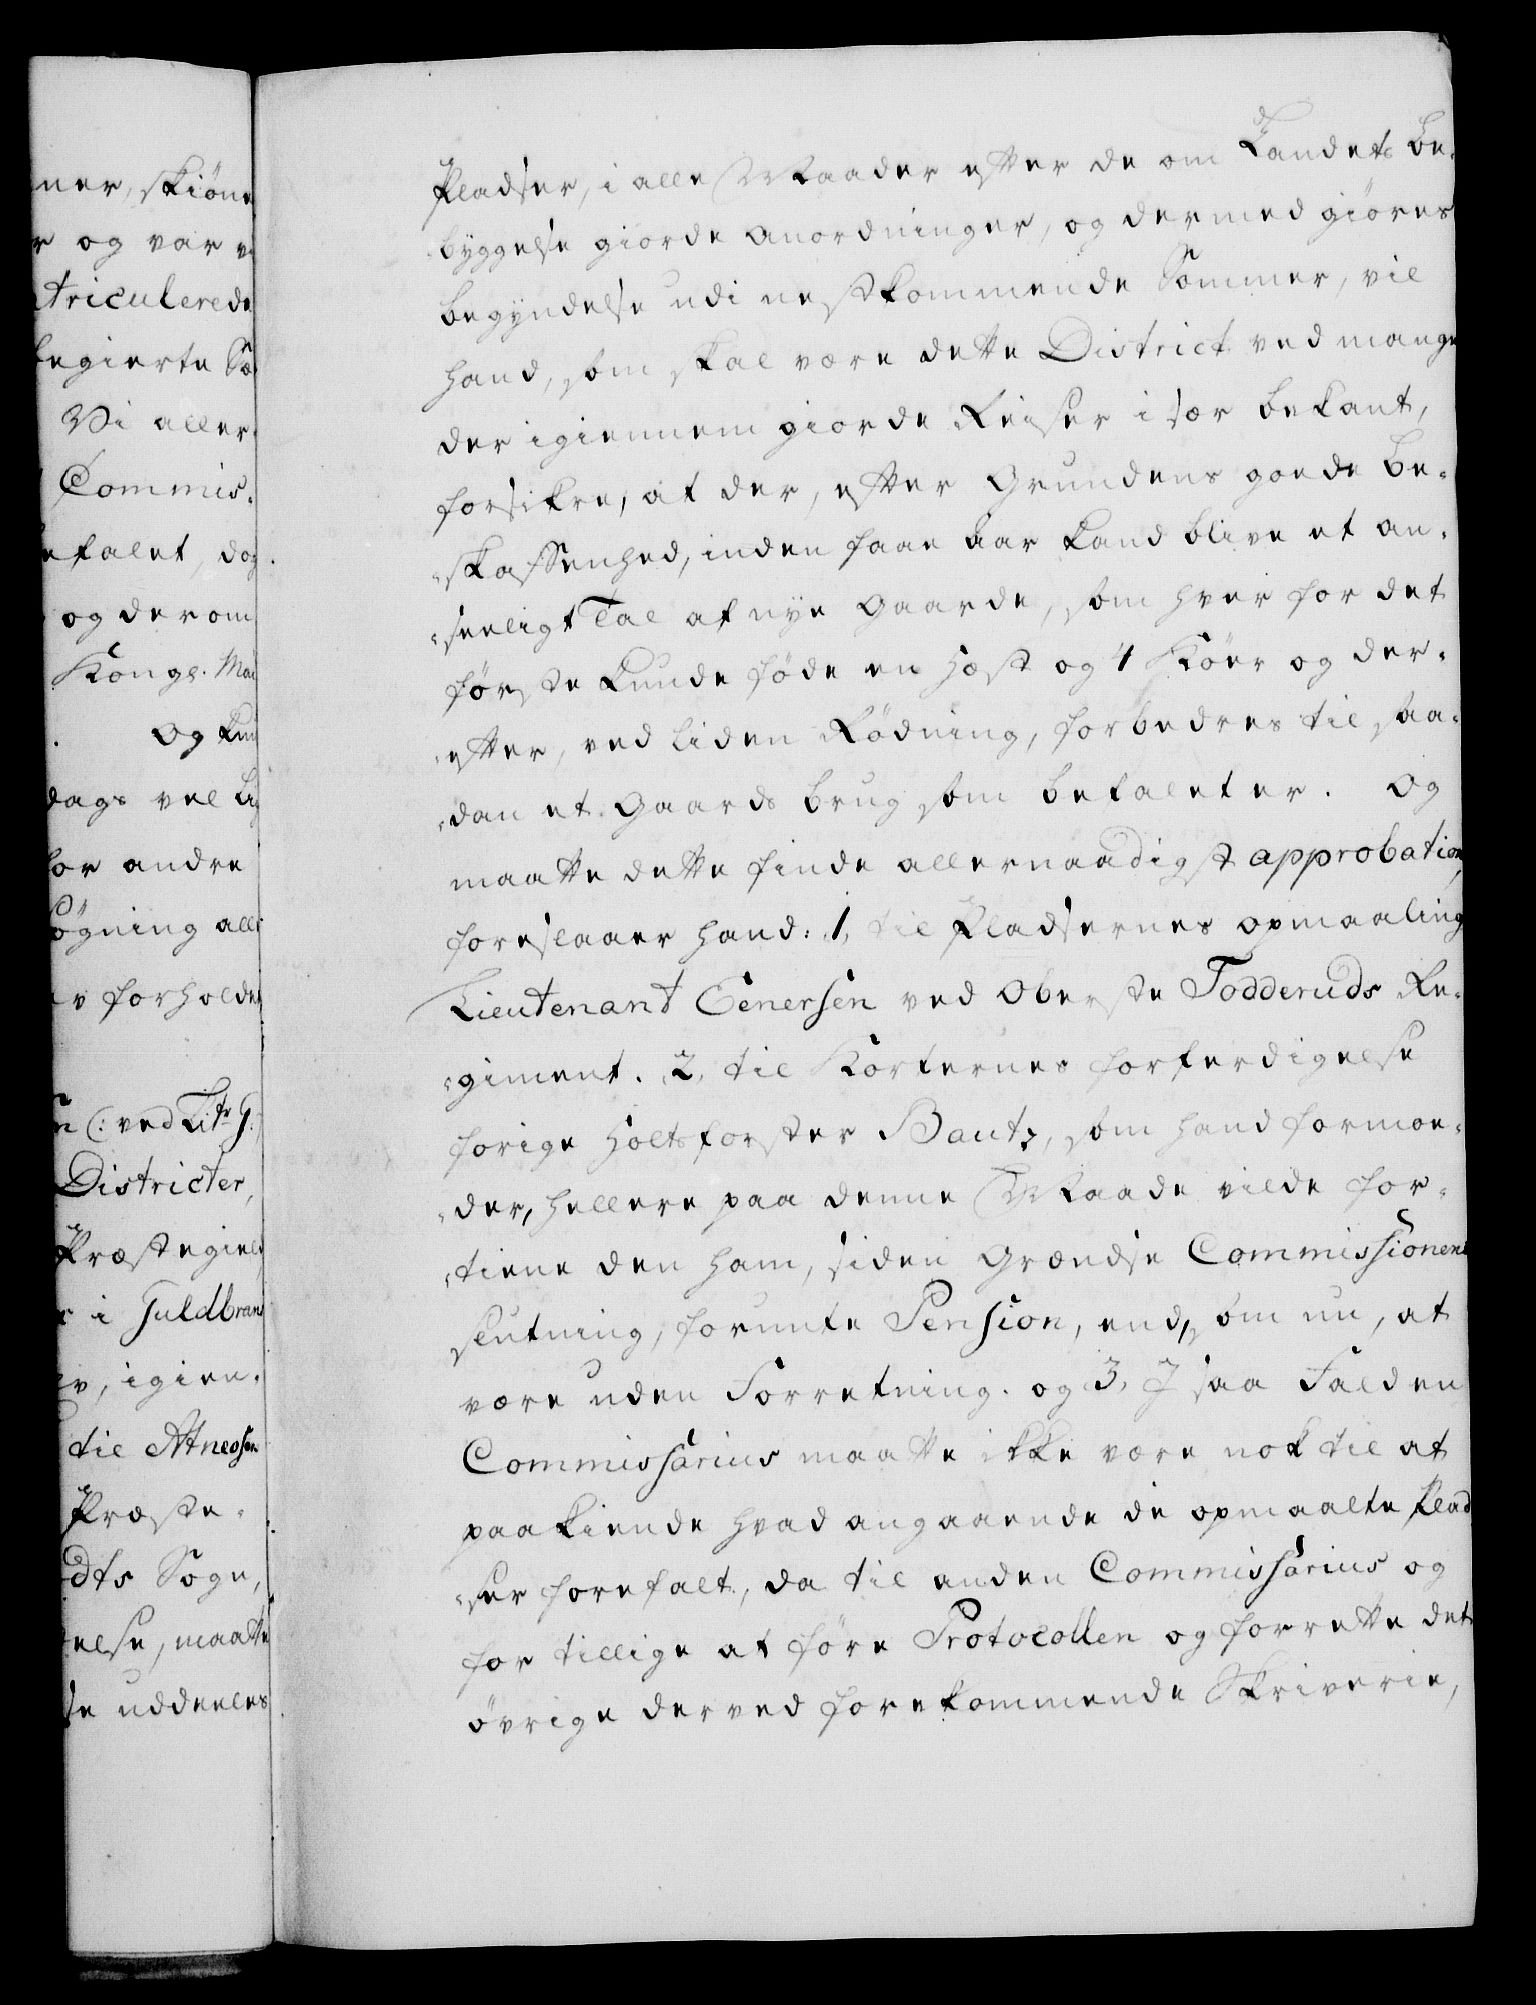 ner, skiöne
r og var v
triculerede
begierte Sæ
Vi aller-
Commis-
efalet, dog
og derom
Kongl. Mai
Og kun
dags vel li
for andre
søgning aller
v forholde
n (: ved Litr G.
Districter,
Præstegield
r i Guldbrans
v, igien-
til Atneosen
Præste-
dts Sogn,
else, maatte
se uddeeles
Pladser, i alle Maader efter de om Landets be-
byggelse giorde Anordninger, og dermed giöres
begyndelse udi nestkommende Sommer, vil
hand, som skal være dette District ved mange
der igiennem giorde Reiser i sær bekant,
forsikre, at der, efter Grundens goede be-
skaffenhed, inden faae aar kand blive et an-
seeligt Tal af nye Gaarde, som hver for det
förste kunde föde en Hæst og 4 Köer og der-
efter, ved liden Rödning, forbedres til saa-
dan et Gaards brug som befalet er. Og
maatte dette finde allernaadigst approbation,
foreslaaer hand: 1, til Pladsernes opmaaling
Lieutenant Eenersen ved Oberste Todderuds Re-
giment. 2, til Korternes forferdigelse
forige Holtsforster Bautz, som hand formoe-
der, hellere paa denne Maade vilde for-
tiene den ham, siden Grændse Commissionens
slutning, forunte Pension, end, som nu, at
være uden Forretning. og 3, I saa Fald en
Commissarius maatte ikke være nok til at
paakiende hvad angaaende de opmaalte Plad-
ser forefalt, da til anden Commissarius og
for tillige at före Protocollen og forrette det
övrige derved forekommende Skriverie,